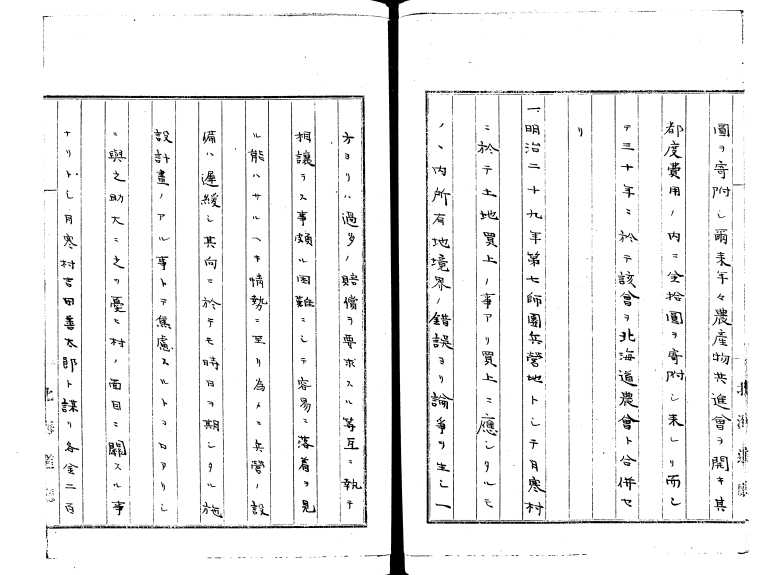 圓ヲ寄附シ爾来年々農産物共進會ヲ開キ其
都度費用ノ内ニ金拾圓ヲ寄附シ来レリ而シ
テ三十年ニ於テ該會ヲ北海道農會ト合併セ
リ
一、明治二十九年第七師團兵營地トシテ月寒村
ニ於テ土地買上ノ事アリ買上ニ應シタルモ
ノヽ内所有地境界ノ錯誤ヨリ論爭ヲ生シ一
方ヨリハ過多ノ賠償ヲ要求スル等互ニ執テ
相讓ラス事頗ル困難ニシテ容易ニ落着ヲ見
ル能ハサルヘキ情勢ニ至リ為メニ兵營ノ設
備ハ遲緩シ其向ニ於テモ時日ヲ期シタル施
設計畫ノアル事トテ焦慮スルトコロアリシ
ニ與之助大ニ之ヲ憂ヒ村ノ面目ニ關スル事
ナリトシ月寒村吉田善太郎ト謀リ各金二百